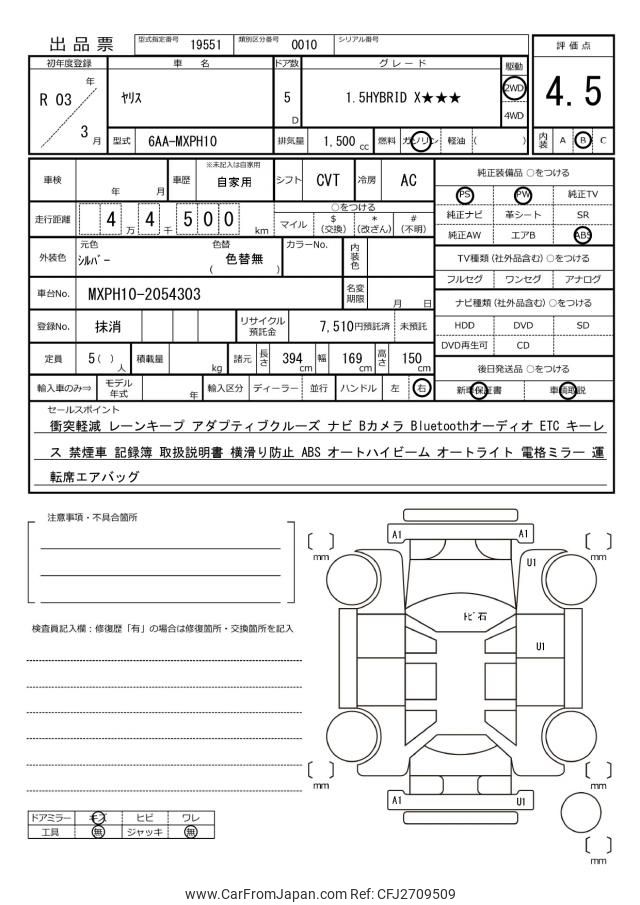 出品票
型式指定番号 19551 類別区分番号 0010 シリアル番号
評価点
4.5
内装 A B C
初年度登録 車名 ドア数 グレード 駆動
R 03 年 3 月
ヤリス 5 D 1.5HYBRID X★★★ 2WD 4WD
型式 6AA-MXPH10 排気量 1,500 cc 燃料 ガソリン 軽油 ( )
車検 年 月 車歴 ※未記入は自家用 自家用 シフト CVT 冷房 AC
走行距離 4 万 4 千 5 0 0 km
○をつける
マイル $(交換) *(改ざん) #(不明)
外装色 元色 シルバー 色替 ( 色替無 ) カラーNo. 内装色
車台No. MXPH10-2054303 名変期限 月 日
登録No. 抹消 リサイクル預託金 7,510円預託済 未預託
定員 5( ) 人 積載量 kg 諸元 長さ 394 cm 幅 169 cm 高さ 150 cm
輸入車のみ⇒ モデル年式 年 輸入区分 ディーラー 並行 ハンドル 左 右
純正装備品 ○をつける
PS PW 純正TV
純正ナビ 革シート SR
純正AW エアB ABS
TV種類 (社外品含む) ○をつける
フルセグ ワンセグ アナログ
ナビ種類 (社外品含む) ○をつける
HDD DVD SD
DVD再生可 CD
後日発送品 ○をつける
新車保証書 車輌取説
セールスポイント
衝突軽減 レーンキープ アダプティブクルーズ ナビ Bカメラ Bluetoothオーディオ ETC キーレ
ス 禁煙車 記録簿 取扱説明書 横滑り防止 ABS オートハイビーム オートライト 電格ミラー 運
転席エアバッグ
注意事項・不具合箇所
検査員記入欄：修復歴「有」の場合は修復箇所・交換箇所を記入
ドアミラー キズ ヒビ ワレ
工具 無 ジャッキ 無
A1 A1
[ ] mm [ ] mm
U1
トビ石
U1
[ ] mm [ ] mm
A1 U1
[ ] mm
www.CarFromJapan.com Ref: CFJ2709509